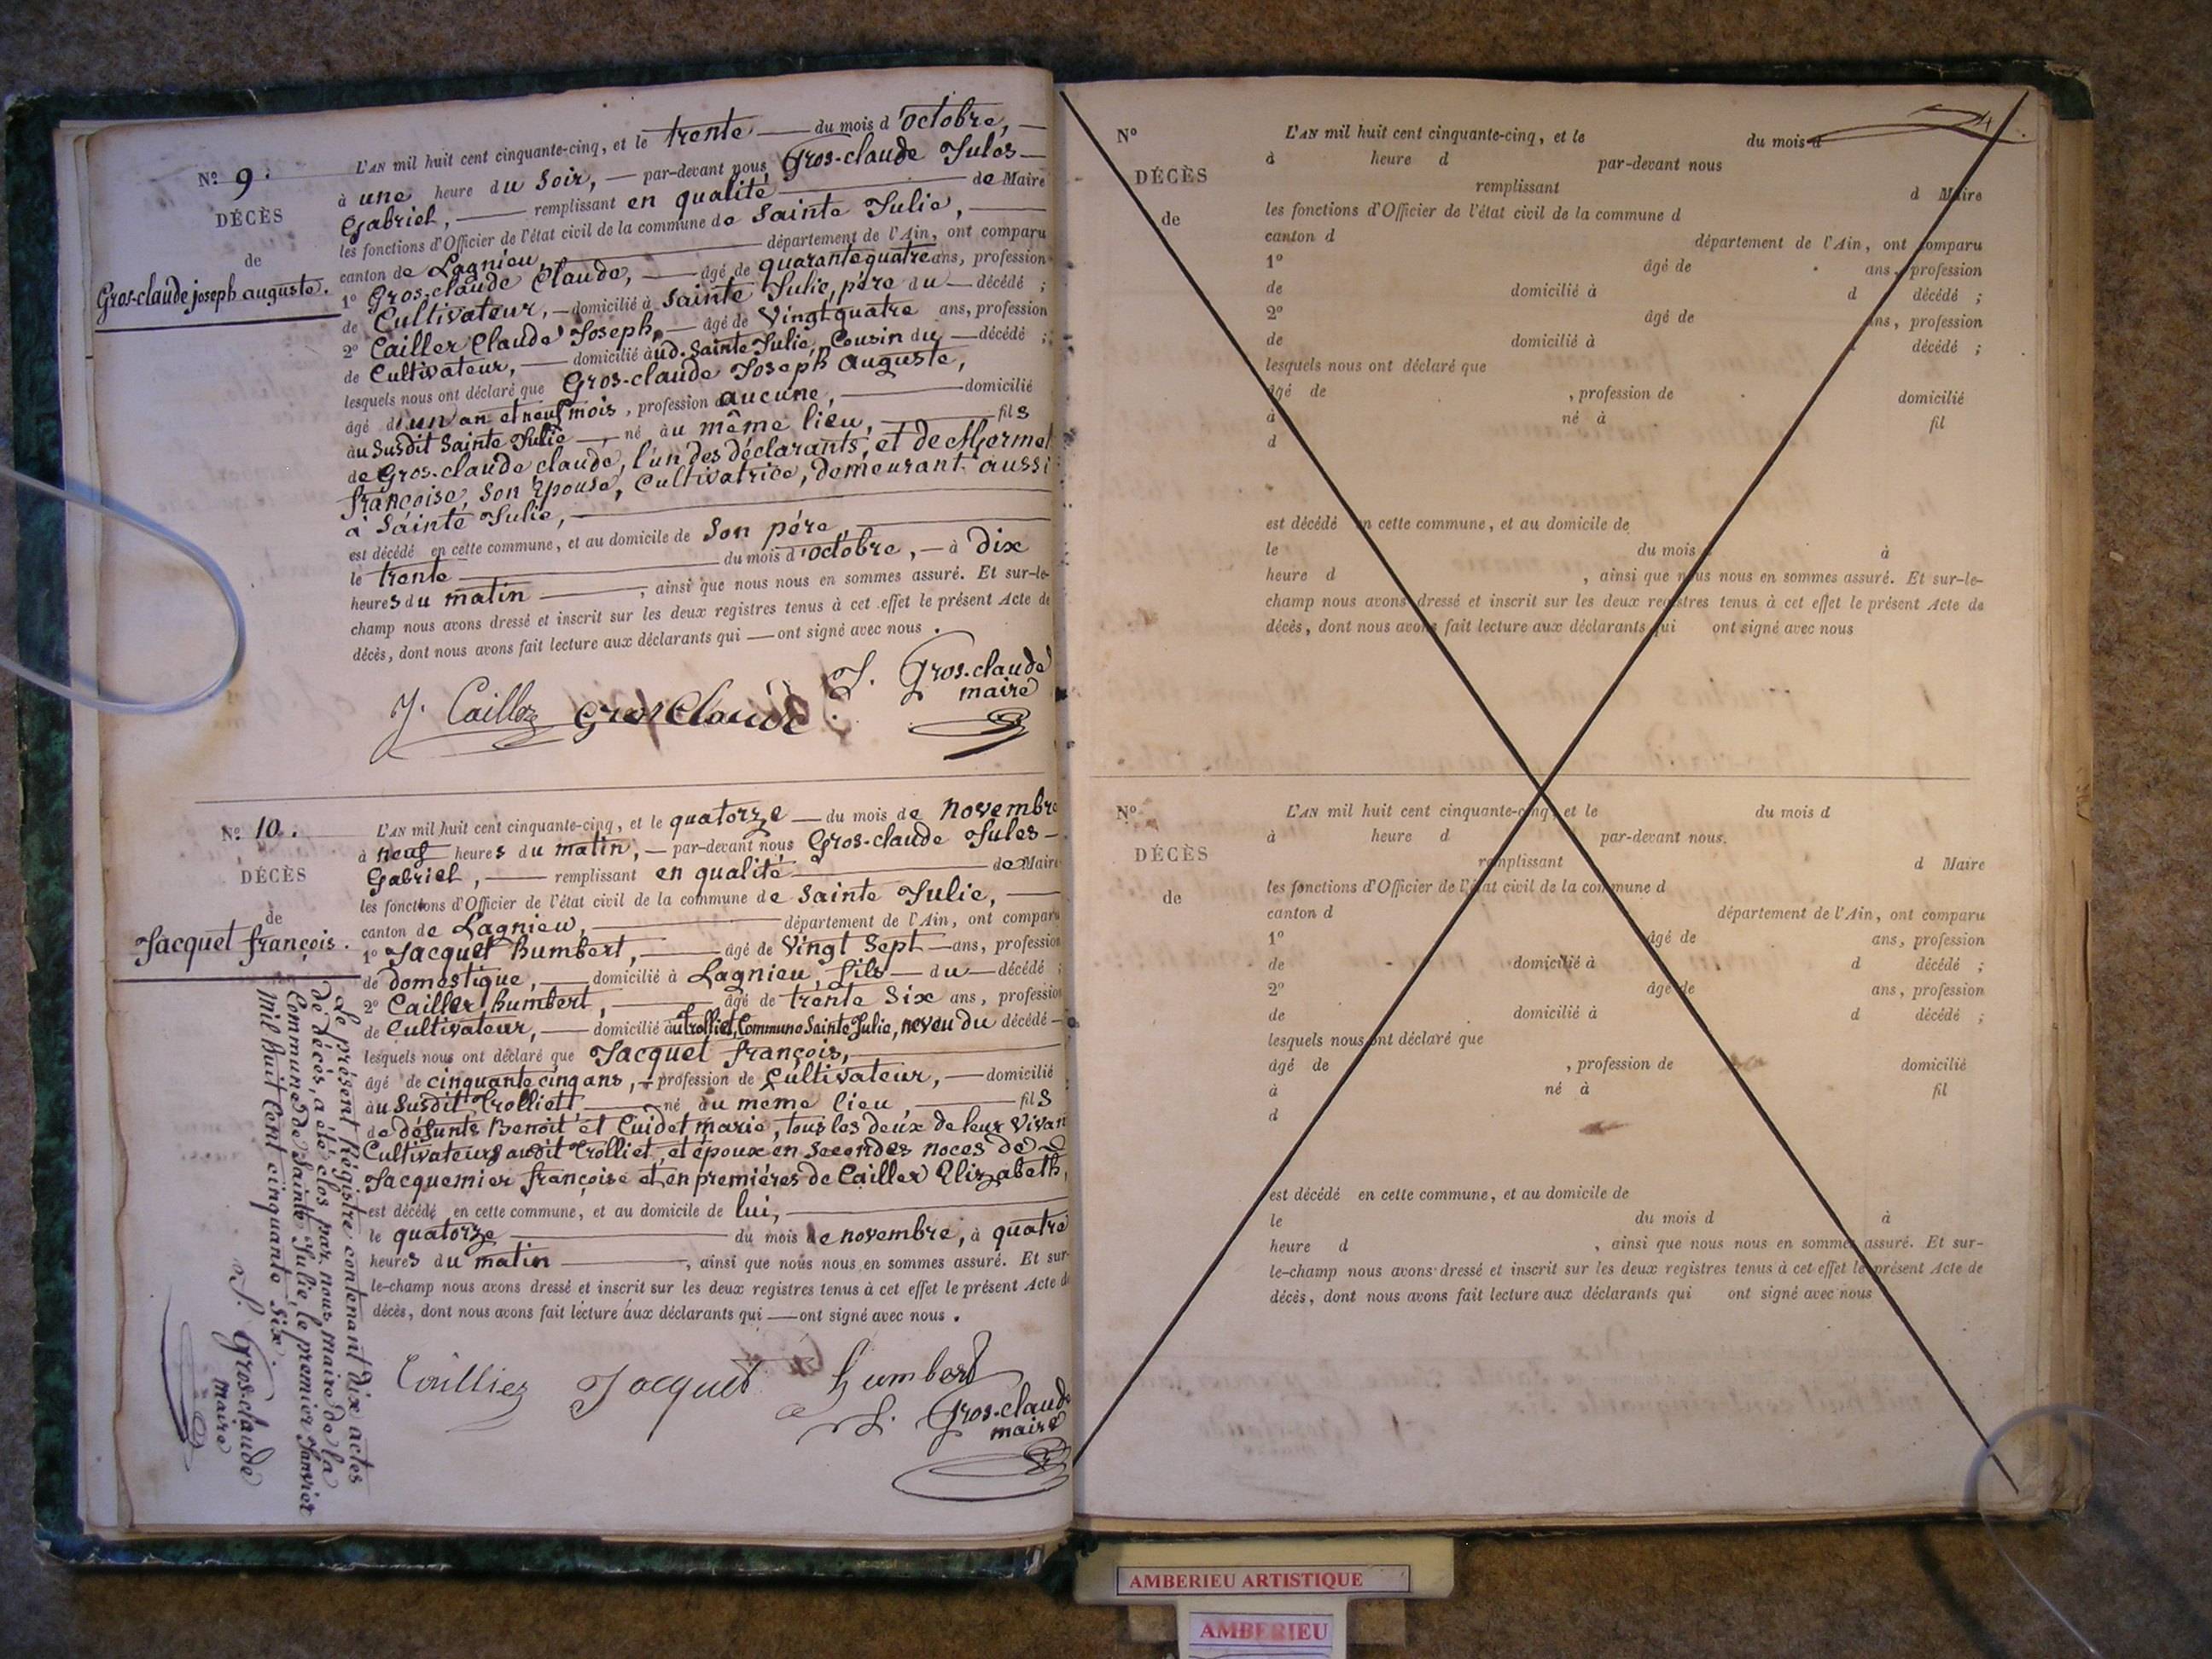 N° 9.
DÉCÈS
de
Gros-claude joseph auguste.
L'AN mil huit cent cinquante-cinq, et le trente du mois d'octobre,
à une heure du soir, par-devant nous Gros-claude Jules
Gabriel, remplissant en qualité de Maire
les fonctions d'Officier de l'état civil de la commune de Sainte Julie,
canton de Lagnieu, département de l'Ain, ont comparu
1° Gros-claude Claude, âgé de quarante quatre ans, profession
de Cultivateur, domicilié à Sainte Julie, père du décédé ;
2° Cailler Claude Joseph, âgé de vingt quatre ans, profession
de Cultivateur, domicilié aud. Sainte Julie, Cousin du décédé ;
lesquels nous ont déclaré que Gros-claude Joseph Auguste,
âgé d'un an et neuf mois, profession aucune, domicilié
au susdit Sainte Julie, né au même lieu, fils
de Gros-claude claude, l'un des déclarants, et de Mermet
françoise, son Epouse, Cultivatrice, demeurant aussi
à Sainte Julie,
est décédé en cette commune, et au domicile de son père,
le trente du mois d'octobre, à dix
heures du matin, ainsi que nous nous en sommes assuré. Et sur-le-
champ nous avons dressé et inscrit sur les deux registres tenus à cet effet le présent Acte de
décès, dont nous avons fait lecture aux déclarants qui ont signé avec nous.
J. Gros-claude
maire
J. Cailler Gros Claude
N° 10.
DÉCÈS
de
Jacquet françois.
L'AN mil huit cent cinquante-cinq, et le quatorze du mois de novembre
à neuf heures du matin, par-devant nous Gros-claude Jules
Gabriel, remplissant en qualité de Maire
les fonctions d'Officier de l'état civil de la commune de Sainte Julie,
canton de Lagnieu, département de l'Ain, ont comparu
1° Jacquet humbert, âgé de vingt sept ans, profession
de domestique, domicilié à Lagnieu, fils du décédé ;
2° Cailler humbert, âgé de trente Six ans, profession
de Cultivateur, domicilié au Trolliet, Commune Sainte Julie, neveu du décédé
lesquels nous ont déclaré que Jacquet françois,
âgé de cinquante cinq ans, profession de Cultivateur, domicilié
au susdit Trolliet, né au même lieu, fils
de défunts Benoit et Cuidet marie, tous les deux de leur vivant
Cultivateurs audit Trolliet, et époux en secondes noces de
Jacquemier françoise et en premières de Cailler Elizabeth,
est décédé en cette commune, et au domicile de lui,
le quatorze du mois de novembre, à quatre
heures du matin, ainsi que nous nous en sommes assuré. Et sur-
le-champ nous avons dressé et inscrit sur les deux registres tenus à cet effet le présent Acte de
décès, dont nous avons fait lecture aux déclarants qui ont signé avec nous.
Cailler Jacquet humbert
J. Gros-claude
maire
Le présent Régistre contenant dix actes
de décès, a été clos par nous maire de la
Commune de Sainte Julie, le premier Janvier
mil huit Cent cinquante Six.
J. Gros-claude
maire
4
N°
DÉCÈS
de
L'AN mil huit cent cinquante-cinq, et le du mois d
à heure d par-devant nous
remplissant d Maire
les fonctions d'Officier de l'état civil de la commune d
canton d département de l'Ain, ont comparu
1° âgé de ans, profession
de domicilié à d décédé ;
2° âgé de ans, profession
de domicilié à décédé ;
lesquels nous ont déclaré que
âgé de , profession de domicilié
à né à fil
d
est décédé en cette commune, et au domicile de
le du mois à
heure d , ainsi que nous nous en sommes assuré. Et sur-le-
champ nous avons dressé et inscrit sur les deux registres tenus à cet effet le présent Acte de
décès, dont nous avons fait lecture aux déclarants qui ont signé avec nous
N°
DÉCÈS
de
L'AN mil huit cent cinquante-cinq, et le du mois d
à heure d par-devant nous.
remplissant d Maire
les fonctions d'Officier de l'état civil de la commune d
canton d département de l'Ain, ont comparu
1° âgé de ans, profession
de domicilié à d décédé ;
2° âgé de ans, profession
de domicilié à d décédé ;
lesquels nous ont déclaré que
âgé de , profession de domicilié
à né à fil
d
est décédé en cette commune, et au domicile de
le du mois d à
heure d , ainsi que nous nous en sommes assuré. Et sur-
le-champ nous avons dressé et inscrit sur les deux registres tenus à cet effet le présent Acte de
décès, dont nous avons fait lecture aux déclarants qui ont signé avec nous
AMBERIEU ARTISTIQUE
AMBERIEU